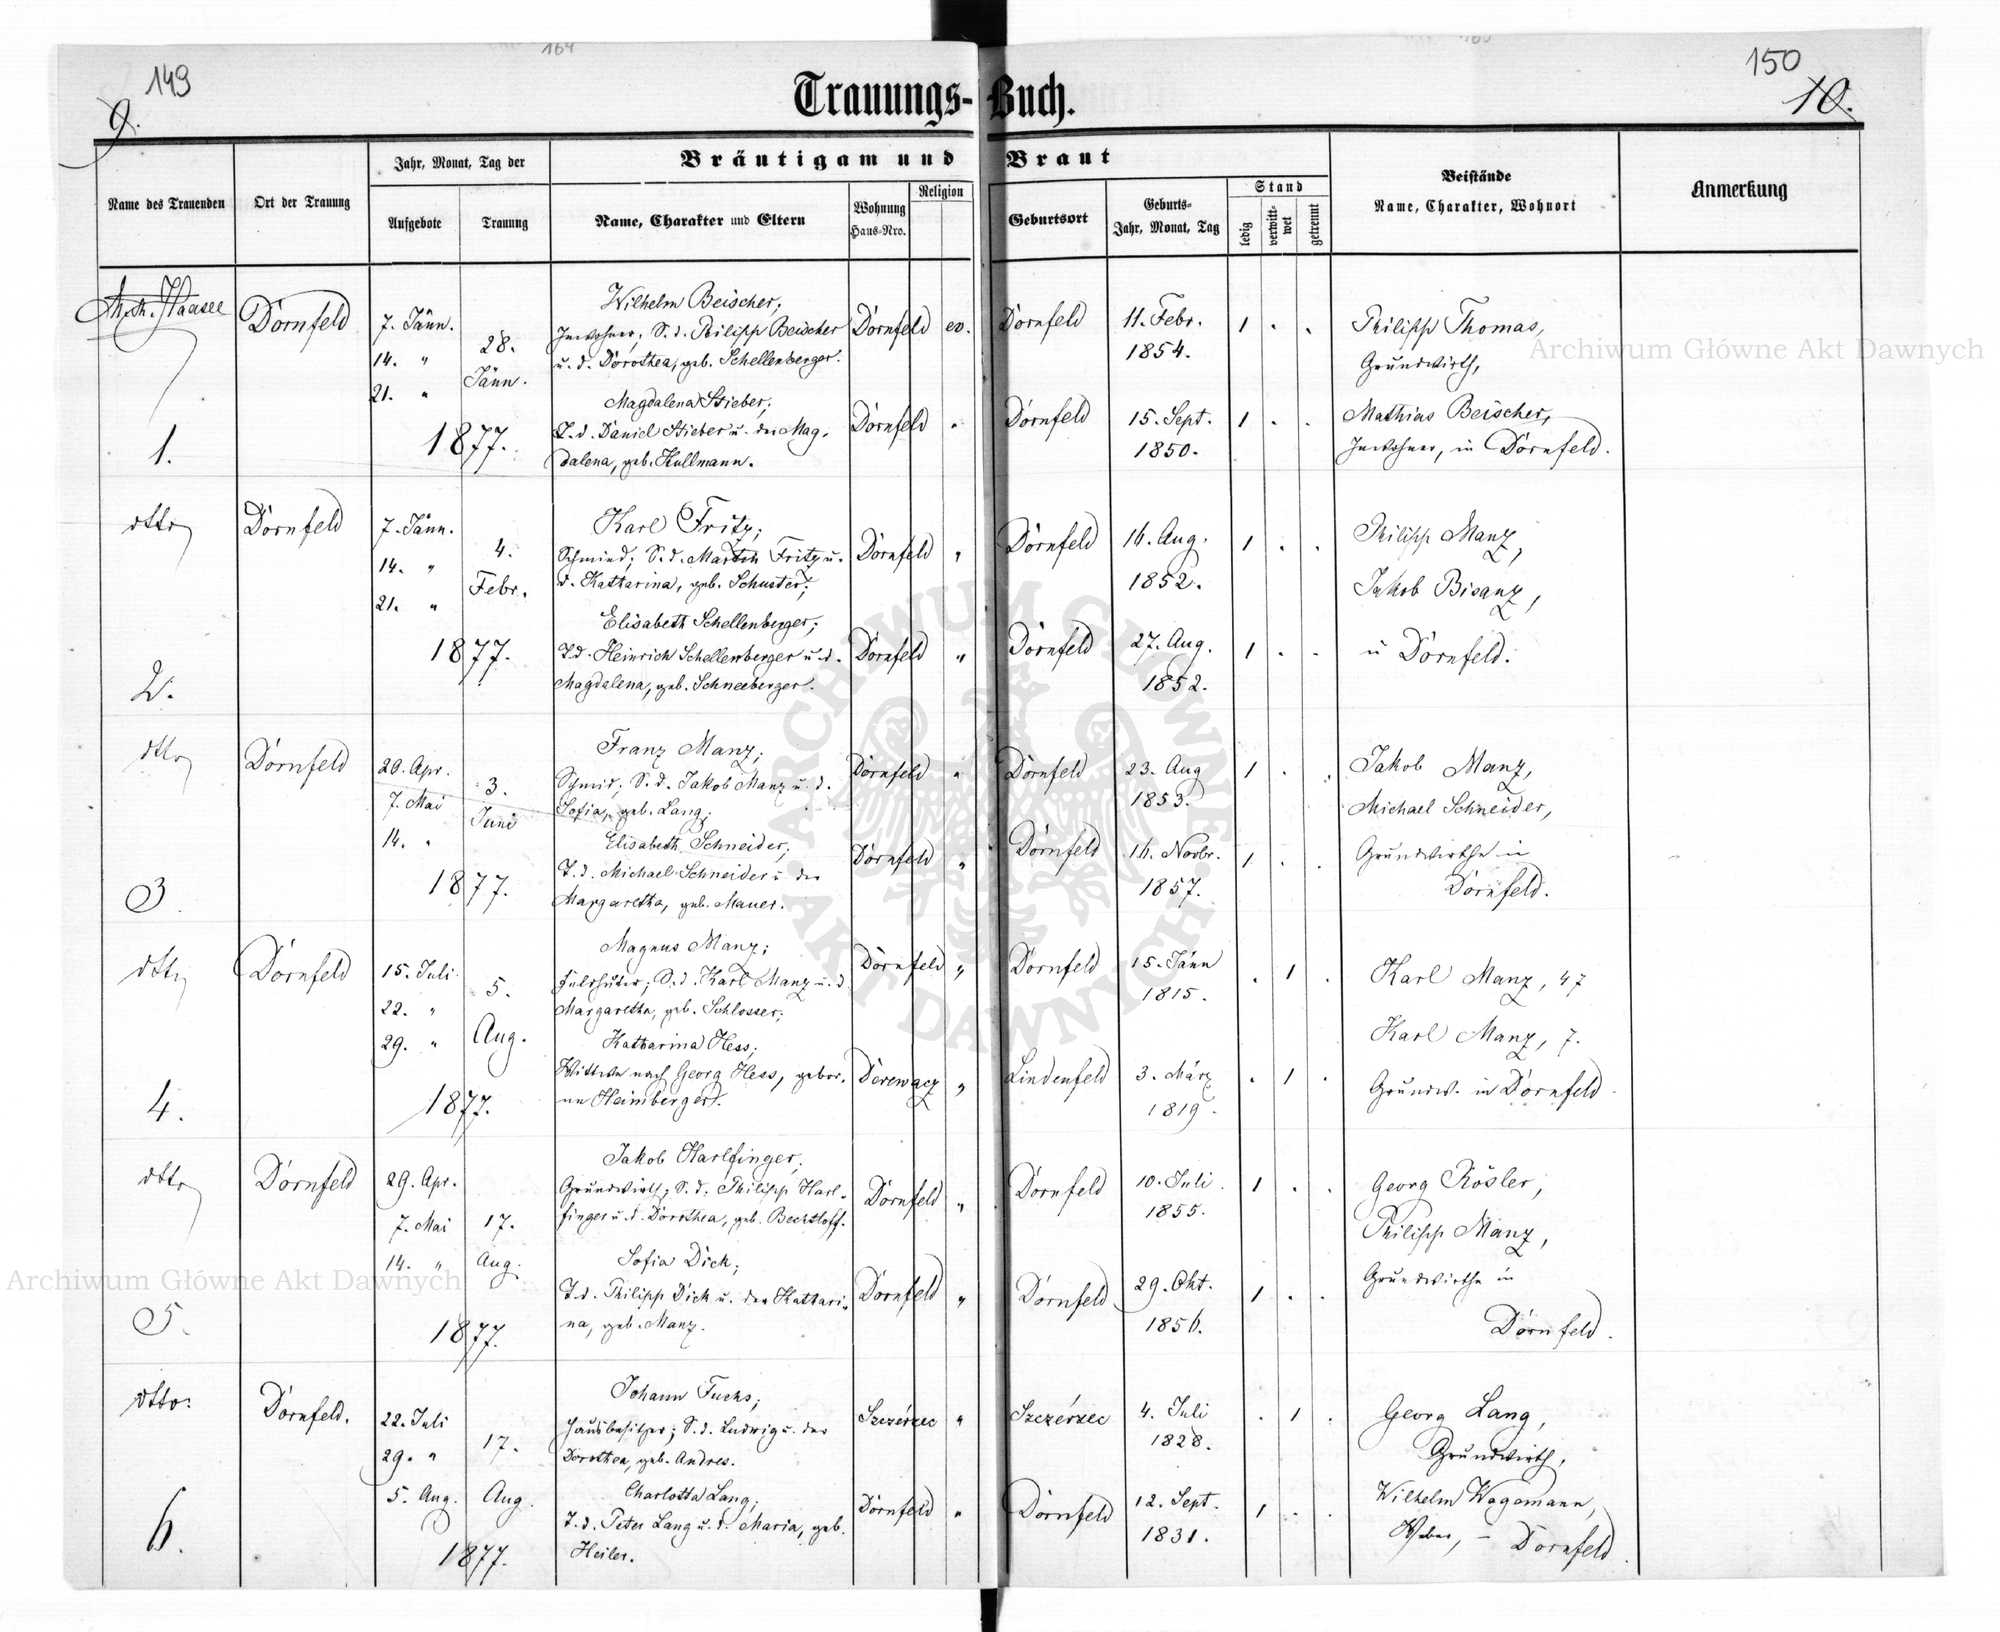 164
149
150
9.
10.
Trauungs-Buch.
Name des Trauenden
Ort der Trauung
Jahr, Monat, Tag der
Aufgebote
Trauung
Bräutigam und Braut
Name, Charakter und Eltern
Wohnung
Haus-Nro.
Religion
Geburtsort
Geburts-
Jahr, Monat, Tag
Stand
ledig
verwitt-
wet
getrennt
Beistände
Name, Charakter, Wohnort
Anmerkung
Haasee
Dornfeld
7. Jänn.
14. "
21. "
28.
Jänn.
1877.
1.
Wilhelm Beischer;
Inwohner; S. d. Philipp Beischer
u. d. Dorothea, geb. Schellenberger.
Dornfeld ev.
Dornfeld
11. Febr.
1854.
1 . .
Magdalena Stieber;
T. d. Daniel Stieber u. der Mag-
dalena, geb. Kullmann.
Dornfeld "
Dornfeld
15. Sept.
1850.
1 . .
Philipp Thomas,
Grundwirth,
Mathias Beischer,
Inwohner, in Dornfeld.
dtto
Dornfeld
7. Jänn.
14. "
21. "
4.
Febr.
1877.
2.
Karl Fritz;
Schmied; S. d. Martin Fritz u.
d. Katharina, geb. Schuster;
Dornfeld "
Dornfeld
16. Aug.
1852.
1 . .
Elisabeth Schellenberger;
T. d. Heinrich Schellenberger u. d.
Magdalena, geb. Schneeberger.
Dornfeld "
Dornfeld
27. Aug.
1852.
1 . .
Philipp Manz,
Jakob Bisanz,
Dornfeld.
dtto
Dornfeld
7. Mai
14. "
3.
Juni
1877.
3
Franz Manz;
Schmid; S. d. Jakob Manz u. d.
Sofia, geb. Lang;
Dornfeld "
Dornfeld
23. Aug
1853.
1 . .
Elisabeth Schneider;
T. d. Michael Schneider u. der
Margaretha, geb. Mauer.
Dornfeld "
Dornfeld
16. Novbr.
1857.
1 . .
Jakob Manz,
Michael Schneider,
Grundwirthe in
Dornfeld.
dtto
Dornfeld
15. Juli
22. "
29. "
5.
Aug.
1877.
4.
Magnus Manz;
S. d. Karl Manz u. d.
Margaretha, geb. Schlosser;
Dornfeld "
Dornfeld
15. Jänn
1815.
. 1 .
Katharina Hess;
Wittwe nach Georg Hess, gebor-
ne Heimberger.
Derewacz "
Lindenfeld
3. März
1819.
. 1 .
Karl Manz, 47
Karl Manz, 7.
Grundw. in Dornfeld.
dtto
Dornfeld
29. Apr.
7. Mai
14. "
17.
Aug.
1877.
5.
Jakob Harlfinger,
Grundwirth; S. d. Philipp Harl-
finger u. d. Dorothea, geb. Bechtloff.
Dornfeld "
Dornfeld
10. Juli
1855.
1 . .
Sofia Dick;
T. d. Philipp Dick u. der Kathari-
na, geb. Manz.
Dornfeld "
Dornfeld
29. Okt.
1856.
1 . .
Georg Rösler,
Philipp Manz,
Grundwirthe in
Dornfeld.
dtto.
Dornfeld.
22. Juli
29. "
5. Aug.
17.
Aug.
1877.
6.
Johann Fuchs;
Hausbesitzer; S. d. Ludwig u. der
Dorothea, geb. Andres.
Szczérzec "
Szczérzec
4. Juli
1828.
. 1 .
Charlotta Lang;
T. d. Peter Lang u. d. Maria, geb.
Heiler.
Dornfeld "
Dornfeld
12. Sept.
1831.
1 . .
Georg Lang,
Grundwirth,
Wilhelm Wagemann,
Weber, – Dornfeld.
Archiwum Główne Akt Dawnych
Archiwum Główne Akt Dawnych
ARCHIWUM GŁÓWNE AKT DAWNYCH